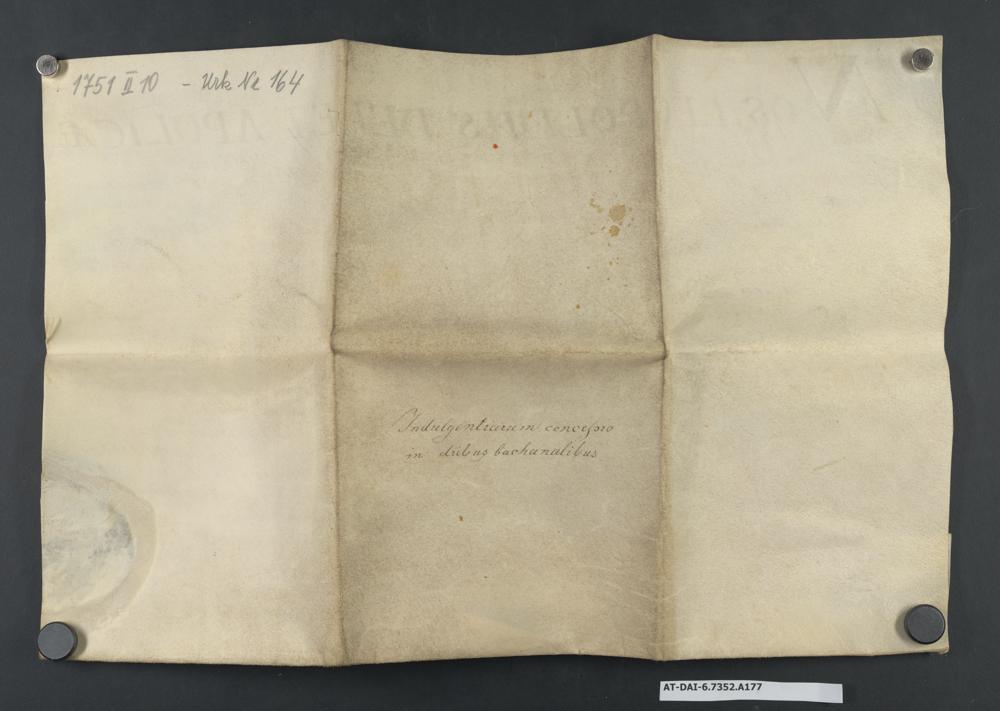 1751 II 10 - Urk Nr 164
Indulgentiarum concessio
in diebus bachanalibus
AT-DAI-6.7352.A177